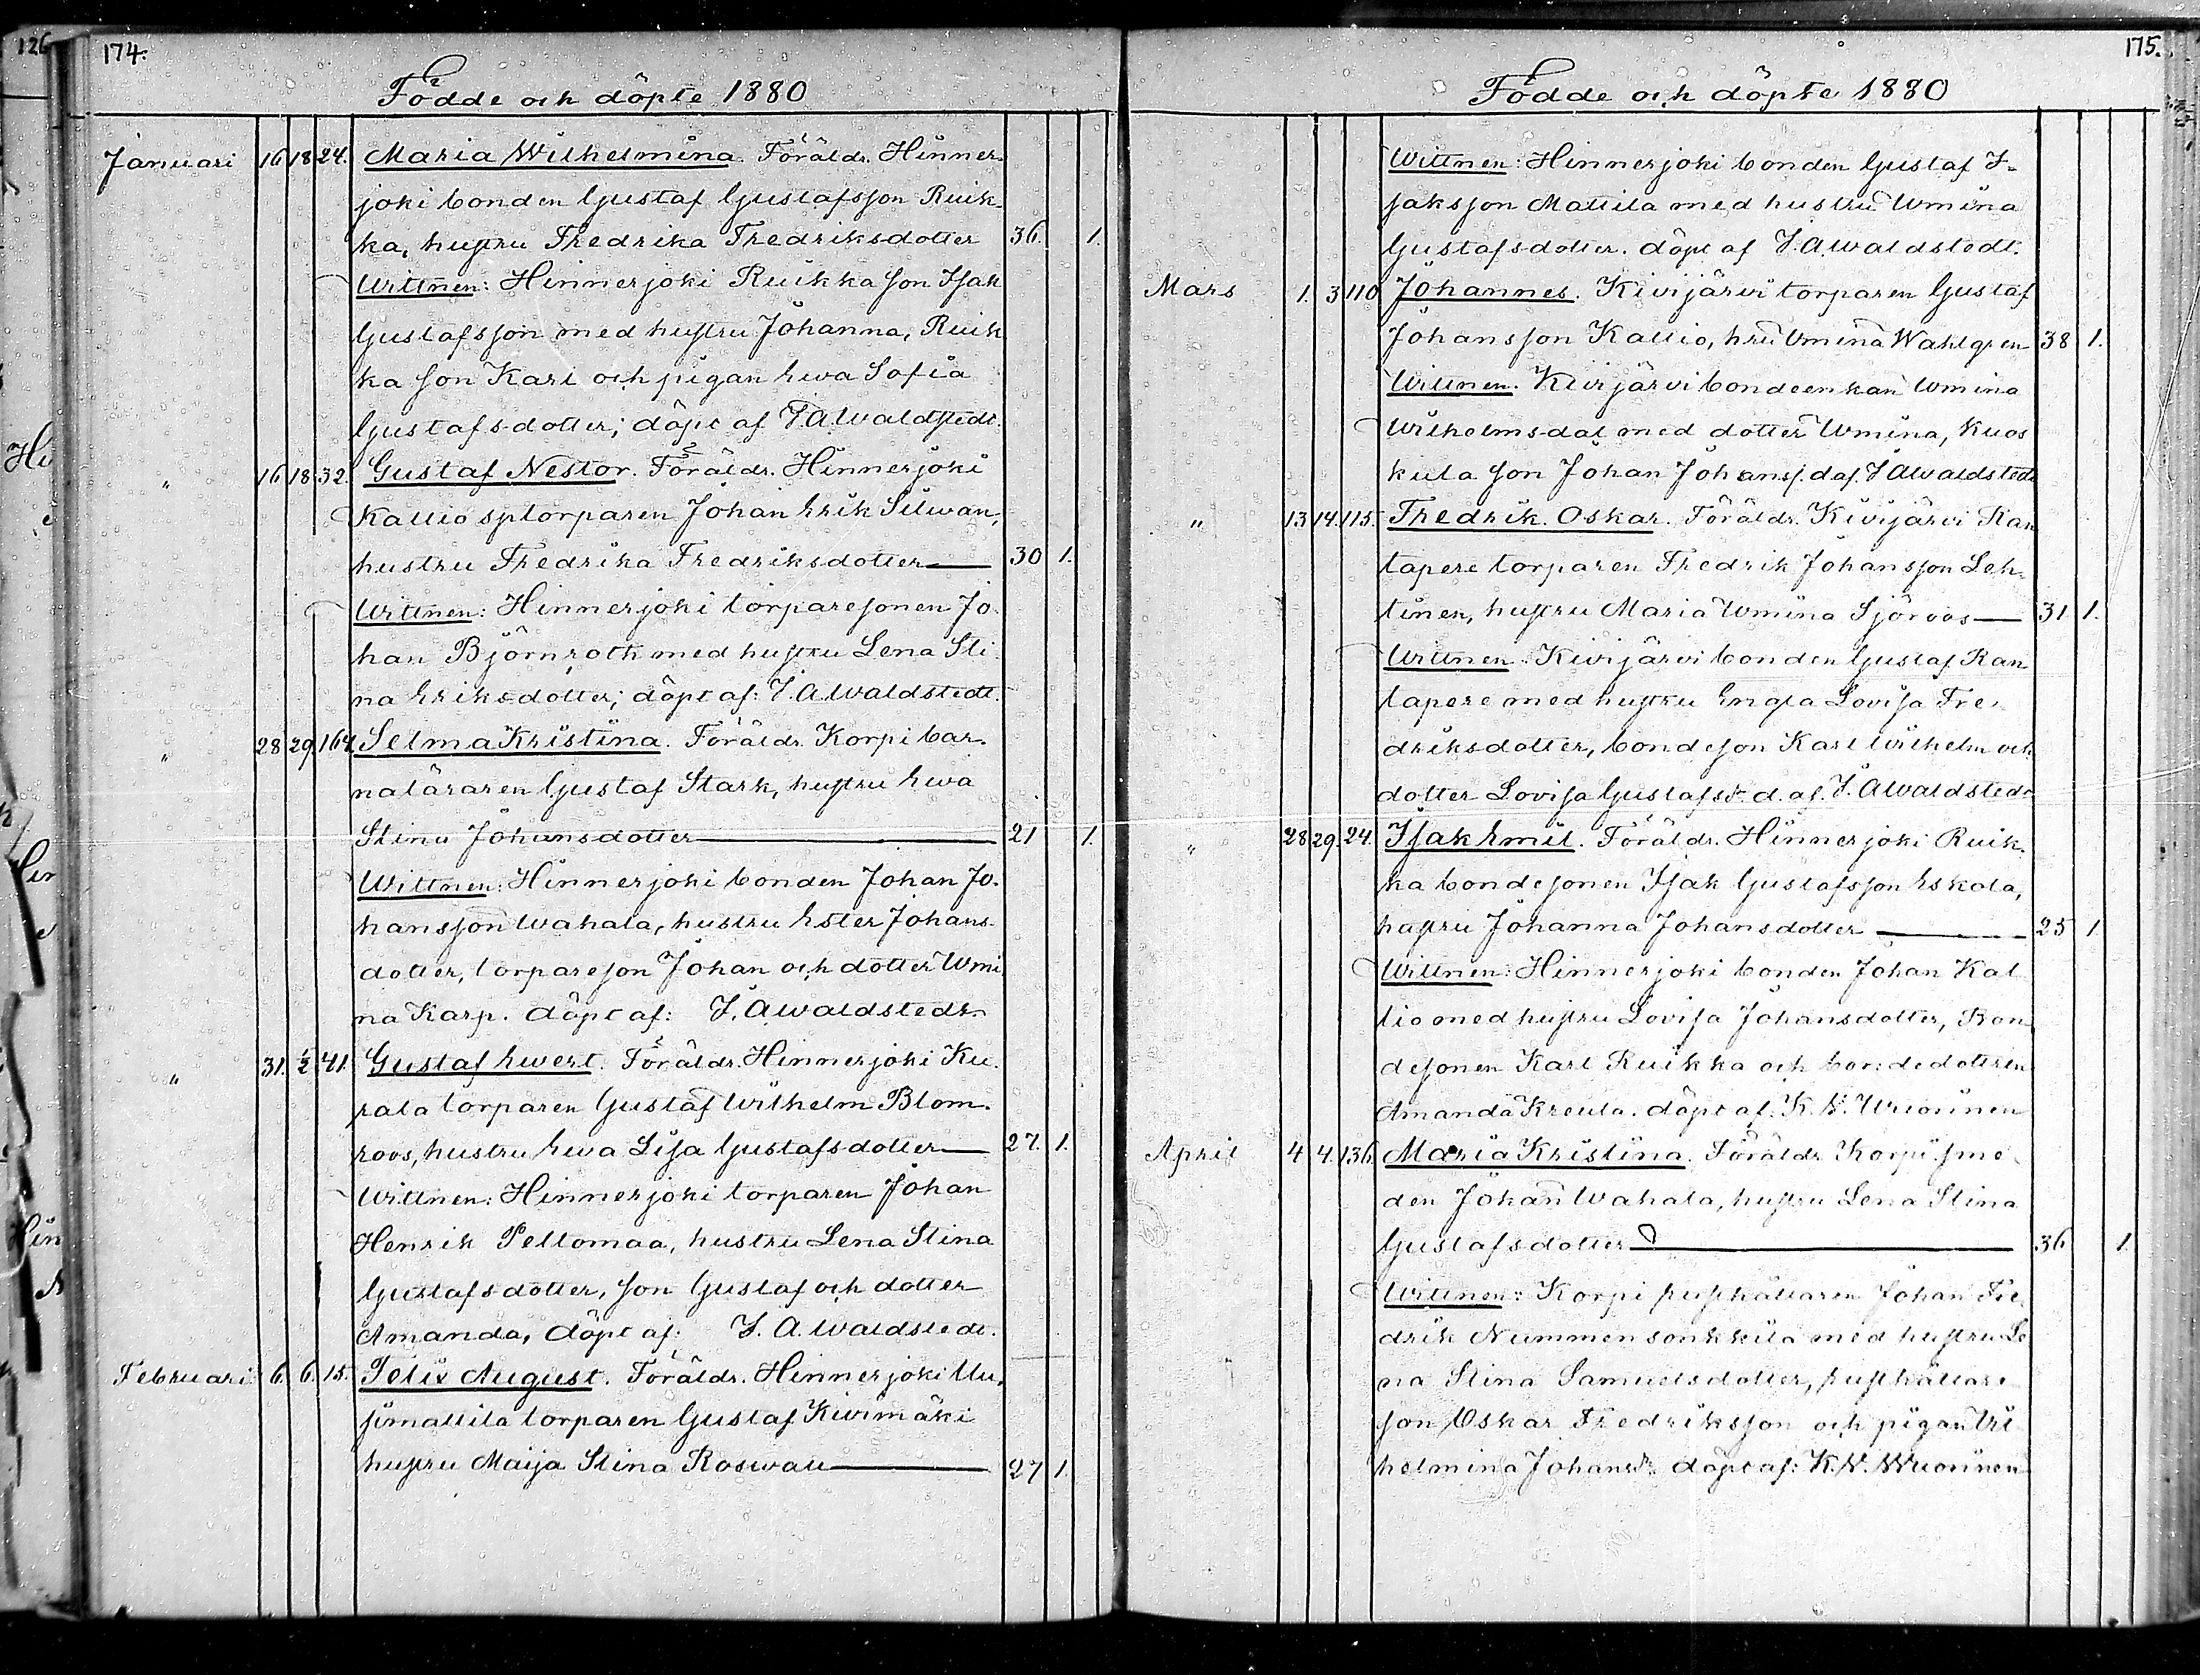 126
174.
Födde och döpte 1880
Januari 16 18 24. Maria Wilhelmina. Föräldr. Hinner-
joki bonden Gustaf Gustafsson Ruik-
ka, hustru Fredrika Fredriksdotter 36. 1.
Wittnen: Hinnerjoki Ruikka son Isak
Gustafsson med hustru Johanna, Ruik
ka son Karl och pigan Ewa Sofia
Gustafsdotter; döpt af F. A Waldstedt.
" 16 18 32. Gustaf Nestor. Föräldr. Hinnerjoki
Kallio sptorparen Johan Erik Silwan,
hustru Fredrika Fredriksdotter 30 1.
Wittnen: Hinnerjoki torparesonen Jo-
han Björnroth med hustru Lena Sti-
na Eriksdotter; döpt af: F. A Waldstedt.
" 28 29. 164. Selma Kristina. Föräldr. Korpi bar-
naläraren Gustaf Stark, hustru Ewa
Stina Johansdotter 21 1.
Wittnen: Hinnerjoki bonden Johan Jo-
hansson Wahala, hustru Ester Johans-
dotter, torpareson Johan och dotter Wmi
na Karp. döpt af: F. A Waldstedt.
" 31. ½ 41. Gustaf Ewert. Föräldr. Hinnerjoki Ku-
rala torparen Gustaf Wilhelm Blom-
roos, hustru Ewa Lisa Gustafsdotter 27. 1.
Wittnen: Hinnerjoki torparen Johan
Henrik Peltomaa, hustru Lena Stina
Gustafsdotter, son Gustaf och dotter
Amanda, döpt af: F. A. Waldstedt.
Februari 6. 6. 15. Felix August. Föräldr. Hinnerjoki Uu-
simattila torparen Gustaf Kivimäki
hustru Maija Stina Roswall 27 1.
175.
Födde och döpte 1880
Wittnen: Hinnerjoki bonden Gustaf I-
saksson Mattila med hustru Wmina
Gustafsdotter. döpt af F. A Waldstedt.
Mars 1. 3 110 Johannes. Kivijärvi torparen Gustaf
Johansson Kallio, hru Wmina Wahlgren 38 1.
Wittnen. Kivijärvi bondeenkan Wmina
Wilhelmsdot med dotter Wmina, Kuos
kula son Johan Johanss. d af. F A Waldstedt
" 13 14. 115. Fredrik Oskar. Föräldr. Kivijärvi Ran
tapere torparen Fredrik Johansson Leh-
tinen, hustru Maria Wmina Sjöroos 31 1.
Wittnen. Kivijärvi bonden Gustaf Ran
tapere med hustru Engla Lovisa Fre-
driksdotter, bondeson Karl Wilhelm och
dotter Lovisa Gustafsdr. d. af. F. A Waldstedt
" 28 29. 24. Isak Emil. Föräldr. Hinnerjoki Ruik-
ka bondesonen Isak Gustafsson Eskola,
hustru Johanna Johansdotter 25 1
Wittnen: Hinnerjoki bonden Johan Kal
lio med hustru Lovisa Johansdotter, Bon-
desonen Karl Ruikka och bondedottren
Amanda Kreula. döpt af: K. V. Wuorinen
April 4 4. 136. Maria Kristina. Föräldr. Korpi sme-
den Johan Wahala, hustru Lena Stina
Gustafsdotter 36 1.
Wittnen: Korpi pusthållaren Johan Fre-
drik Nummensonkkila med hustru Le
na Stina Samuelsdotter, pusthållare
son Oskar Fredriksson och pigan Wil
helmina Johansdr. döpt af: K. V. Wuorinen